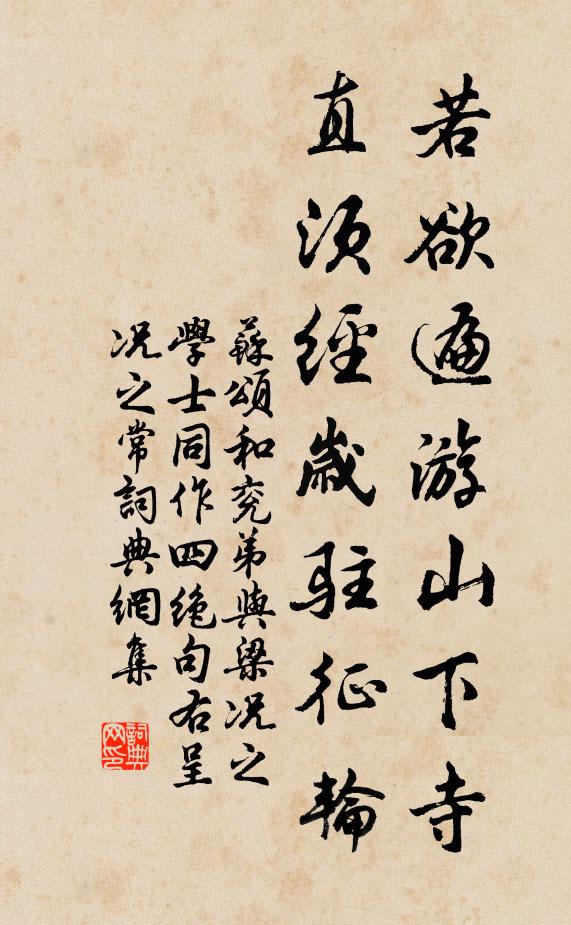 若欲遍游山下寺
直須經歲駐征輪
蘇頌和兖弟與梁况之
學士同作四絶句右呈
况之常詞典網集
詞典网印